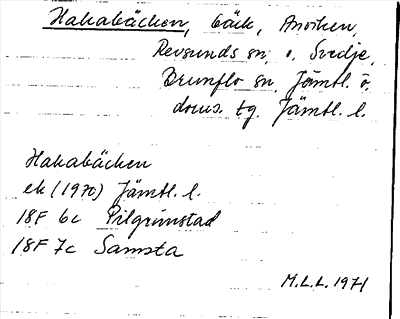 Hakabäcken, bäck, Anviken,
Revsunds sn, o. Svedje,
Brunflo sn, Jämtl. ö.
doms. tg. Jämtl. l.
Hakabäcken
ek (1970) Jämtl. l.
18F 6c Pilgrimstad
18F 7c Samsta
M.L.L. 1971